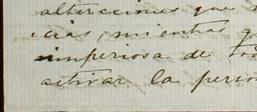 alteraciones que
cias, mientras q
imperiosa de
activar la perso